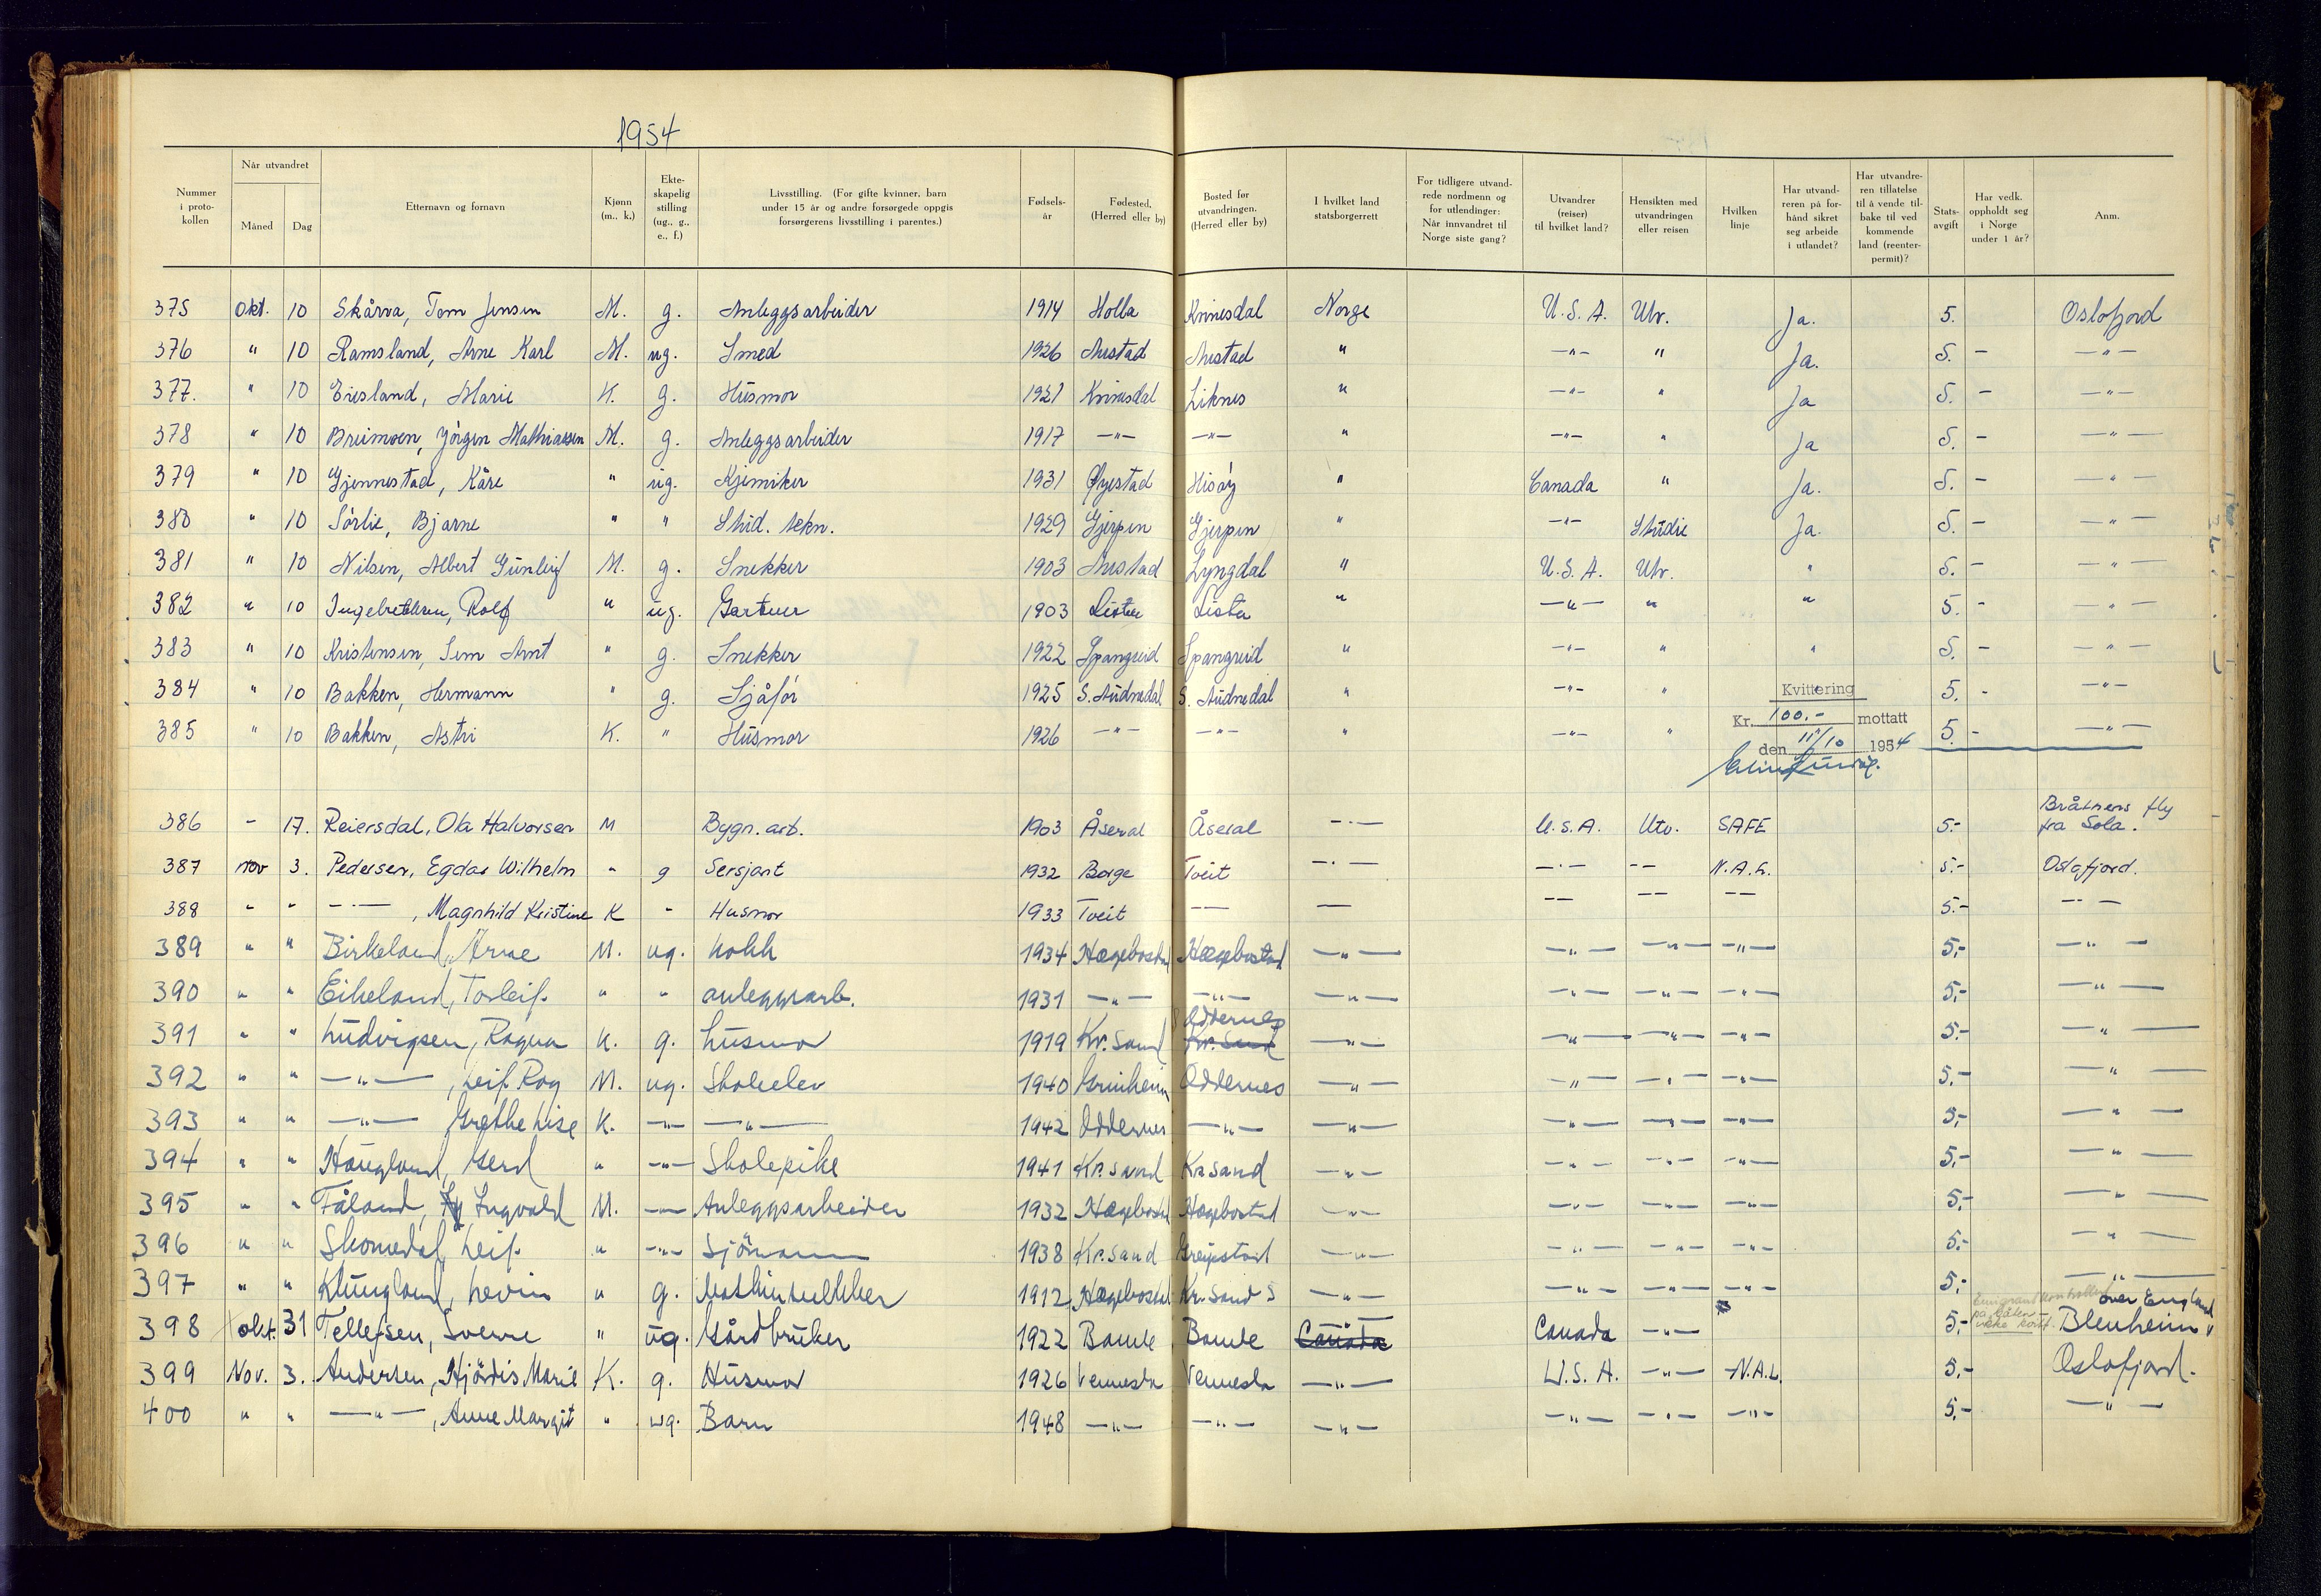 1954
Nummer i proto- kollen | Når utvandret Måned Dag | Etternavn og fornavn | Kjønn (m., k.) | Ekte- skapelig stilling (ug., g., e., f.) | Livsstilling. (For gifte kvinner, barn under 15 år og andre forsørgede oppgis forsørgerens livsstilling i parentes.) | Fødsels- år | Fødested, (Herred eller by) | Bosted før utvandringen. (Herred eller by) | I hvilket land statsborgerrett | For tidligere utvand- rede nordmenn og for utlendinger: Når innvandret til Norge siste gang? | Utvandrer (reiser) til hvilket land? | Hensikten med utvandringen eller reisen | Hvilken linje | Har utvand- reren på for- hånd sikret seg arbeide i utlandet? | Har utvandre- ren tillatelse til å vende til- bake til ved kommende land (reenter- permit)? | Stats- avgift | Har vedk. oppholdt seg i Norge under 1 år? | Anm.
375 Okt. 10 Skårva, Tom Jensen M. g. Anleggsarbeider 1914 Holla Kvinesdal Norge U.S.A. Utv. Ja. 5. Oslofjord
376 " 10 Ramsland, Arne Karl M. ug. Smed 1926 Austad Austad " —"— " Ja. 5. – —"—
377. " 10 Eiesland, Marie K. g. Husmor 1921 Kvinesdal Liknes " —"— " Ja 5. – —"—
378 " 10 Breimoen, Jörgen Mathiassen M. g. Anleggsarbeider 1917 —"— —"— " —"— " Ja 5. – —"—
379 " 10 Gjennestad, Kåre " ug. Kjemiker 1931 Øyestad Hisöy " Canada " Ja. 5. – —"—
380 " 10 Sörlie, Bjarne " " Stud. tekn. 1929 Gjerpen Gjerpen " —"— Studie Ja. 5. – —"—
381 " 10 Nilsen, Albert Gunleif M. g. Snekker 1903 Austad Lyngdal " U.S.A. Utv. " 5. – —"—
382 " 10 Ingebretsen, Rolf " ug. Gartner 1903 Lista Lista " —"— " " 5. – —"—
383 " 10 Kristensen, Sem Arnt " g. Snekker 1922 Spangreid Spangreid " —"— " " 5. – —"—
384 " 10 Bakken, Hermann " g. Sjåför 1925 S. Audnedal S. Audnedal " —"— " Kvittering 5. – —"—
385 " 10 Bakken, Astri K. " Husmor 1926 —"— —"— " —"— " Kr. 100.- mottatt 5. – —"—
den 11/10 1954
386 – 17. Reiersdal, Ola Halvorsen M Bygn. arb. 1903 Åseral Åseral —·— U.S.A. Utv. SAFE 5.- Bråthens fly fra Sola.
387 nov 3. Pedersen, Egdar Wilhelm " g Sersjant 1932 Borge Tveit —·— —·— –– N.A.L. 5.- Oslofjord.
388 " " —·—, Magnhild Kristine K " Husmor 1933 Tveit –– — –– –– –– 5.- —"—
389 " " Birkeland, Arne M. ug. Kokk 1934 Hægebostad Hægebostad —"— —"— —"— —"— 5,- —"—
390 " " Eikeland, Torleif. " " anleggsarb. 1931 —"— —"— —"— —"— —"— —"— 5,- —"—
391 " " Ludvigsen, Ragna K. g. Husmor 1919 Kr. Sand Oddernes Kr. Sand —"— —"— —"— —"— 5.- —"—
392 " " —"—, Leif Roy M. ug. Skoleelev 1940 Greinheim Oddernes —"— —"— —"— —"— 5,- —"—
393 " " —"— Grethe Lise K. —"— —"— 1942 Oddernes —"— —"— —"— —"— —"— 5,- —"—
394 " " Haugland, Gerd " —"— Skolepike 1941 Kr. sand Kr. sand —"— —"— —"— —"— 5,- —"—
395 " " Fåland, Ingvald M. —"— Anleggsarbeider 1932 Hægebostad Hægebostad —"— —"— —"— —"— 5,- —"—
396 " " Skomedal, Leif. " —"— Sjömann 1938 Kr. sand Greipstad —"— —"— —"— —"— 5,- —"—
397 " " Klungland, Levin " g. 1912 Hægebostad Kr. Sand S —"— —"— —"— —"— 5,- —"—
398 okt. 31 Tellefsen, Sverre " ug. Gårdbruker 1922 Bamle Bamle —"— Canada Canada —"— 5,- Emigrantkontrollen på båten ikke kort. over England Blenheim "
399 Nov. 3. Andersen, Hjördis Marie K. g. Husmor 1926 Vennesla Vennesla —"— U.S.A. —"— N.A.L. 5,- Oslofjord.
400 " " —"—, Anne Margit " ug. Barn 1948 —"— —"— —"— —"— —"— —"— 5,- —"—